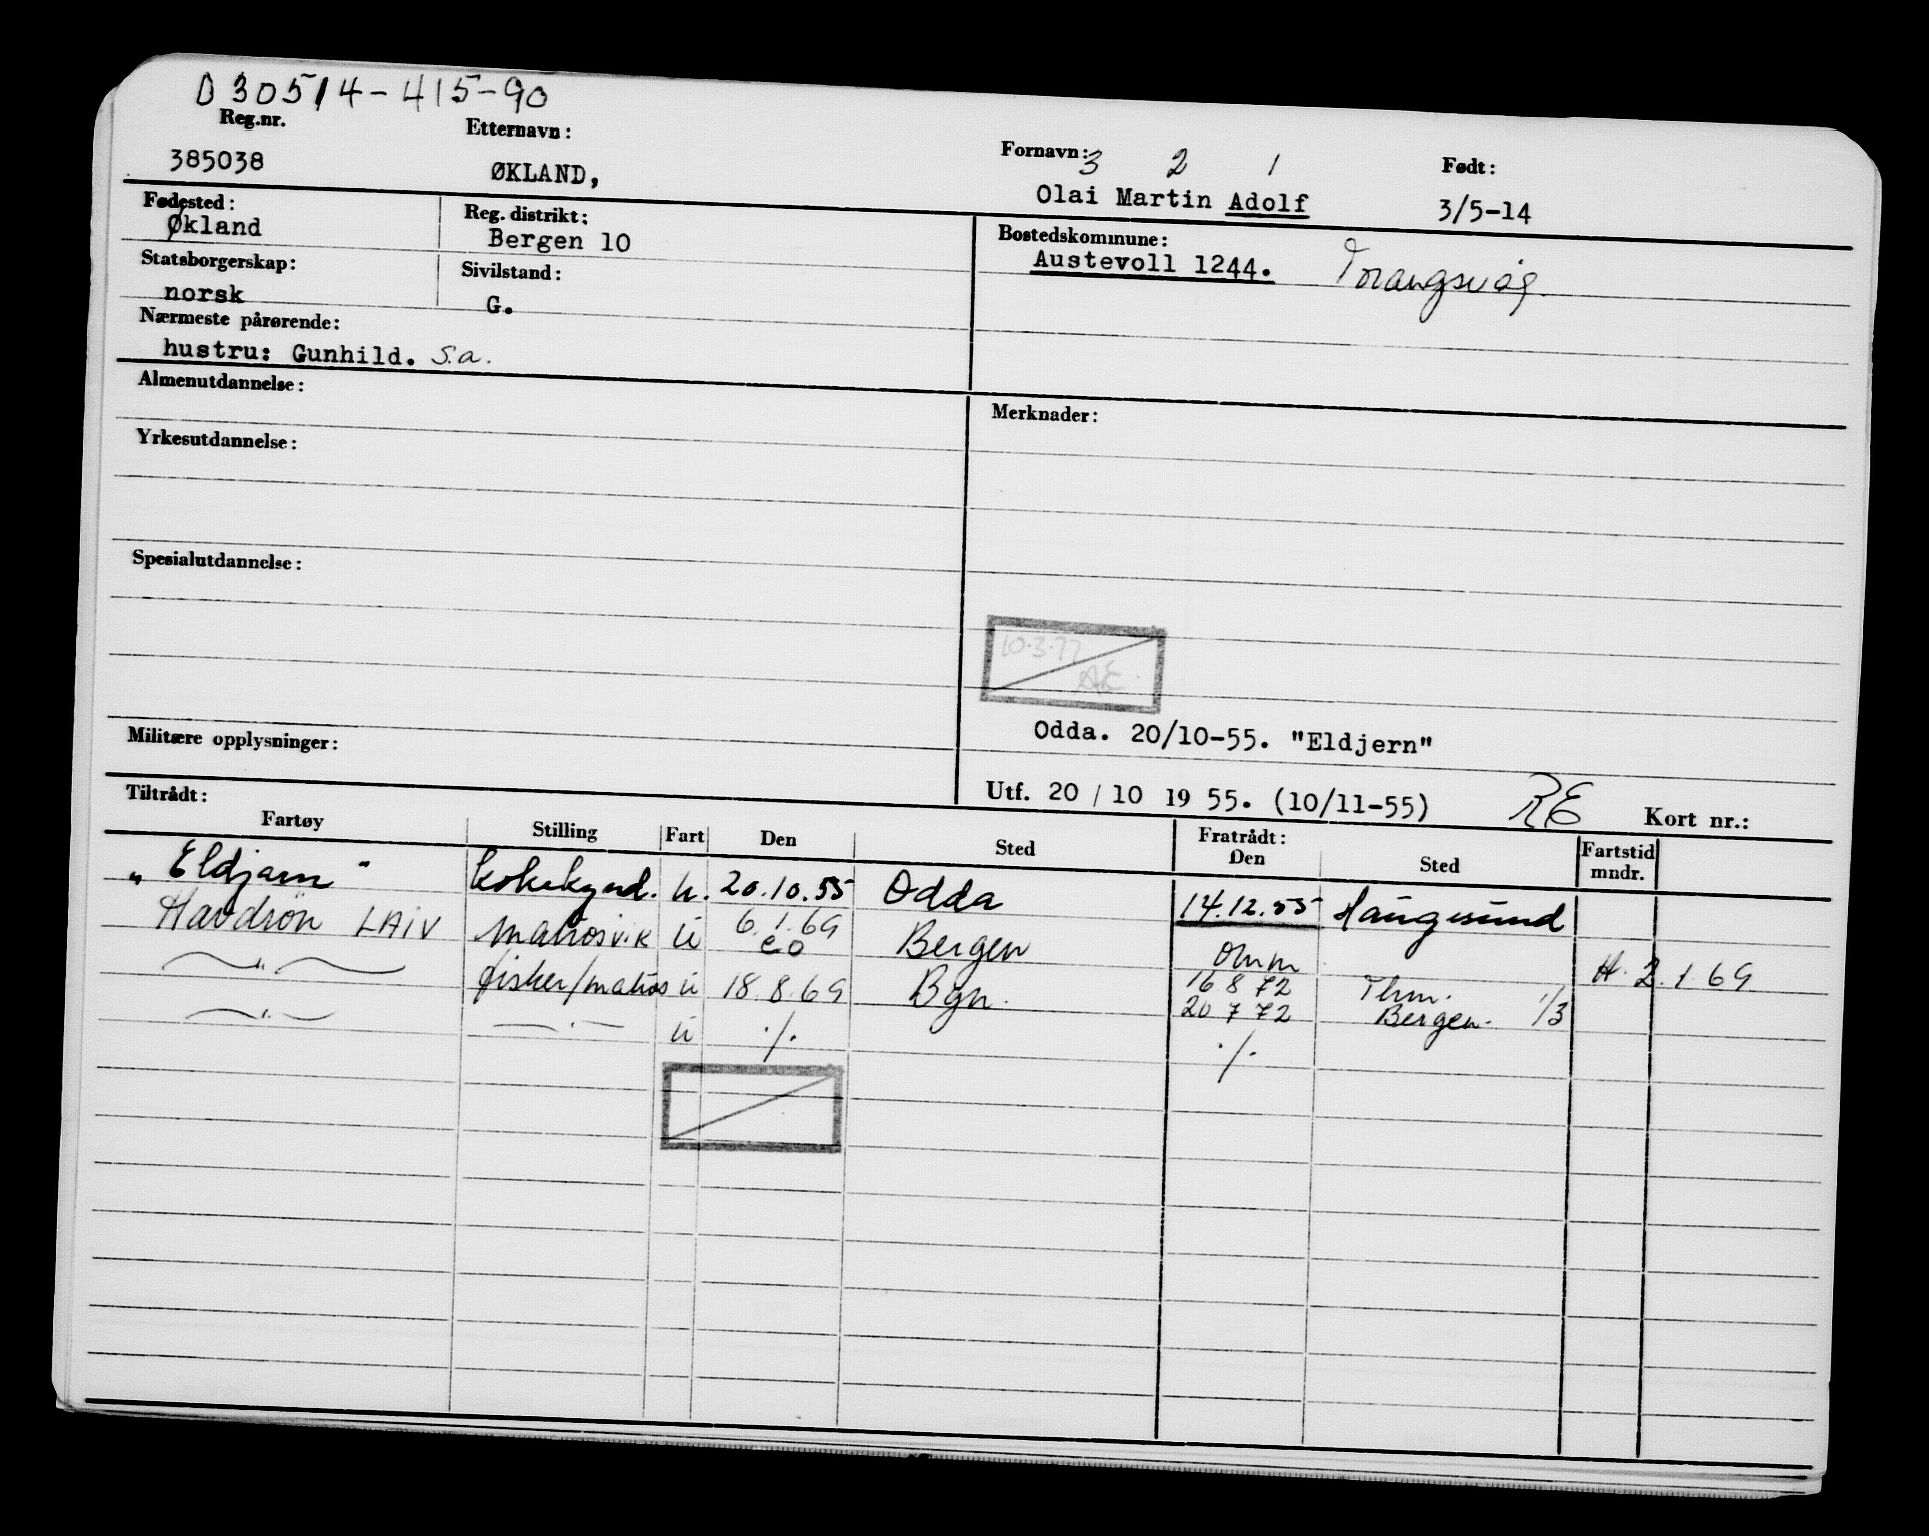 D 30514-415-90
Reg.nr. Etternavn: Fornavn: 3 2 1 Født:
385038 ØKLAND, Olai Martin Adolf 3/5-14
Fødested: Reg. distrikt: Bostedskommune:
Økland Bergen 10 Austevoll 1244. Torangsvåg.
Statsborgerskap: Sivilstand:
norsk G.
Nærmeste pårørende:
hustru: Gunhild. s.a.
Almenutdannelse: Merknader:
Yrkesutdannelse:
Spesialutdannelse:
10.3.77
AE
Militære opplysninger: Odda. 20/10-55. "Eldjern"
Utf. 20 / 10 19 55. (10/11-55) RE Kort nr.:
Tiltrådt: Fratrådt:
Fartøy Stilling Fart Den Sted Den Sted Fartstid mndr.
„Eldjarn" 20.10.55 Odda 14.12.55 Haugesund
Havdrøn LAIV matros v.k u 6.1.69 Bergen omm H. 2.1.69
eo
—"— fisker/matros u 18.8.69 Bgn. 16 8 72 Thm.
20 7 72 Bergen. 1/3
—"— —"— u ./. ./.